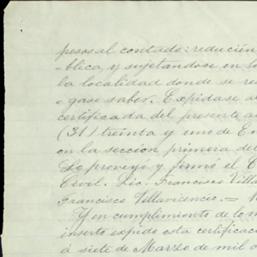 pesos al contado: reducién
blica, y sujetandose en to
la localidad donde se re
gase saber. Expidase a
certificada del presente a
(31) treinta y uno de En
en la sección primera del
Lo proveyó y firmó el C
Civil. Lic. Francisco Villa
Francisco Villavicencio.=
Y en cumplimiento de lo m
inserto expido esta certificac
á siete de Marzo de mil o